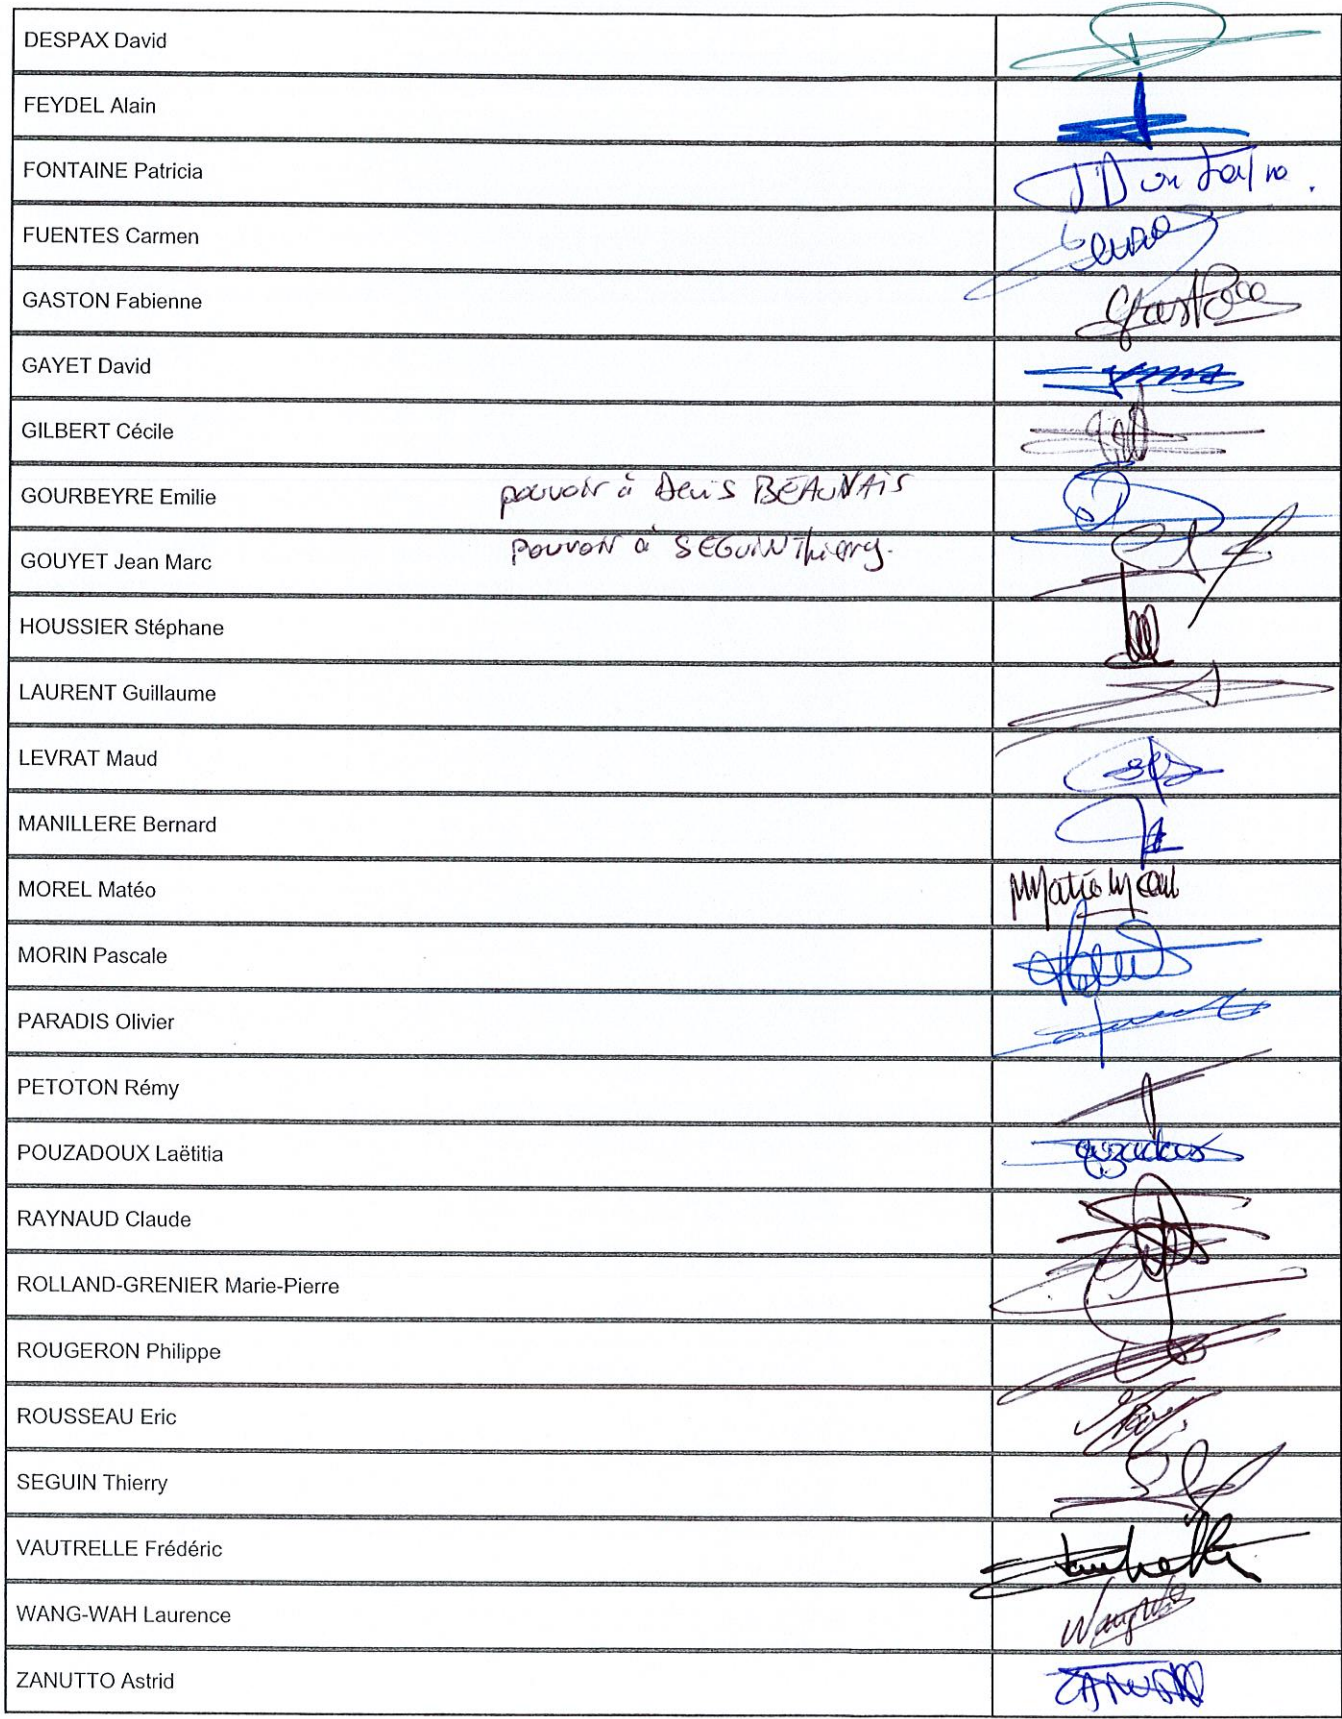 DESPAX David
FEYDEL Alain
FONTAINE Patricia
FUENTES Carmen
GASTON Fabienne
GAYET David
GILBERT Cécile
GOURBEYRE Emilie pouvoir à Denis BEAUNAIS
GOUYET Jean Marc pouvoir à SEGUIN Thierry.
HOUSSIER Stéphane
LAURENT Guillaume
LEVRAT Maud
MANILLERE Bernard
MOREL Matéo
MORIN Pascale
PARADIS Olivier
PETOTON Rémy
POUZADOUX Laëtitia
RAYNAUD Claude
ROLLAND-GRENIER Marie-Pierre
ROUGERON Philippe
ROUSSEAU Eric
SEGUIN Thierry
VAUTRELLE Frédéric
WANG-WAH Laurence
ZANUTTO Astrid